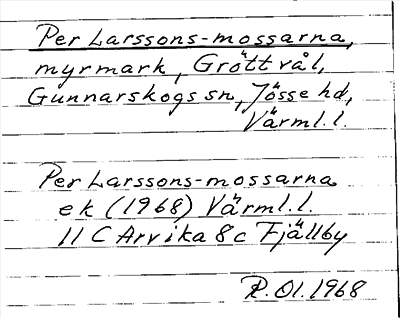 Per Larssons-mossarna,
myrmark, Gröttvål,
Gunnarskogs sn, Jösse hd,
Värml.l.
Per Larssons-mossarna
ek (1968) Värml.l.
11 C Arvika 8c Fjällby
R.Ol.1968